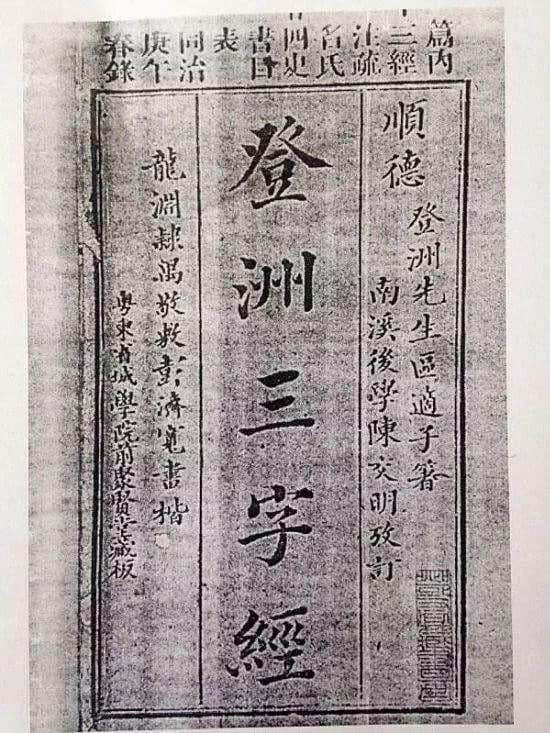 篇内
十三經
注疏
名氏
廿四史
書目
表
同治
庚午
春錄
順德 登洲先生區適子著
南溪後學陳文明攷訂
登洲三字經
龍淵隸禺敬敷彭濟寬書楷
粵東省城學院前聚賢堂藏板